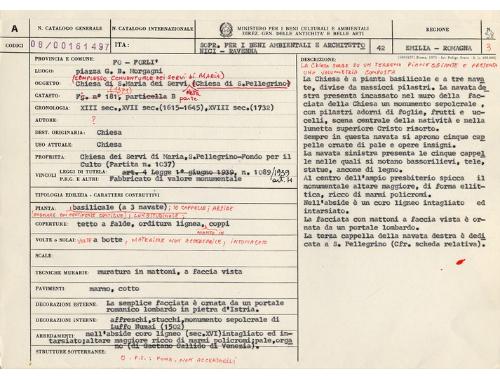 A
N. CATALOGO GENERALE
N. CATALOGO INTERNAZIONALE
MINISTERO PER I BENI CULTURALI E AMBIENTALI
DIREZ. GEN. DELLE ANTICHITÀ E BELLE ARTI
REGIONE
N.
CODICI
08/00161497
ITA:
SOPR. PER I BENI AMBIENTALI E ARCHITETTO
NICI - RAVENNA
42
EMILIA - ROMAGNA
3
PROVINCIA E COMUNE: FO - FORLI'
LUOGO: piazza G. B. Morgagni
(COMPLESSO CONVENTUALE DEI SERVI DI MARIA)
OGGETTO: Chiesa di S. Maria dei Servi, (Chiesa di S. Pellegrino)
CATASTO: Fg. n° 181, particella B parte
CRONOLOGIA: XIII sec., XVII sec. (1615-1645), XVIII sec. (1732)
AUTORE: ?
DEST. ORIGINARIA: Chiesa
USO ATTUALE: Chiesa
PROPRIETÀ: Chiesa dei Servi di Maria, S. Pellegrino-Fondo per il
Culto (Partita n. 1037)
VINCOLI LEGGI DI TUTELA: art. 4 Legge 1° giugno 1939, n. 1089/1939
P.R.G. E ALTRI: Fabbricato di valore monumentale
TIPOLOGIA EDILIZIA - CARATTERI COSTRUTTIVI
PIANTA: basilicale (a 3 navate); 10 CAPPELLE; ABSIDE
COPERTURE: tetto a falde, orditura lignea, coppi
VOLTE o SOLAI: VOLTE a botte, MATERIALE NON ACCERTABILE, INTONACATO
SCALE:
TECNICHE MURARIE: muratura in mattoni, a faccia vista
PAVIMENTI: marmo, cotto
DECORAZIONI ESTERNE: La semplice facciata è ornata da un portale
romanico lombardo in pietra d'Istria.
DECORAZIONI INTERNE: affreschi, stucchi, monumento sepolcrale di
Luffo Numai (1502)
ARREDAMENTI: nell'abside coro ligneo (sec. XVI) intagliato ed in-
tarsiato; altare maggiore ricco di marmi policromi; pale, orga
no (di Gaetano Callido di Venezia).
STRUTTURE SOTTERRANEE:
DESCRIZIONE:
La Chiesa è a pianta basilicale e a tre nava
te, divise da massicci pilastri. La navata de
stra presenta incastonato nel muro della fac
ciata della Chiesa un monumento sepolcrale,
con pilastri adorni di foglie, frutti e uc-
celli, scena centrale della natività e nella
lunetta superiore Cristo risorto.
Sempre in questa navata si aprono cinque cap
pelle ornate di pale e opere insigni.
La navata sinistra presenta le cinque cappel
le nelle quali si notano bassorilievi, tele,
statue, ancone di legno.
Al centro dell'ampio presbiterio spicca il
monumentale altare maggiore, di forma ellit-
tica, ricco di marmi policromi.
Nell'abside è un coro ligneo intagliato ed
intarsiato.
La facciata con mattoni a faccia vista è or-
nata da un portale lombardo.
La terza cappella della navata destra è dedi
cata a S. Pellegrino (Cfr. scheda relativa).